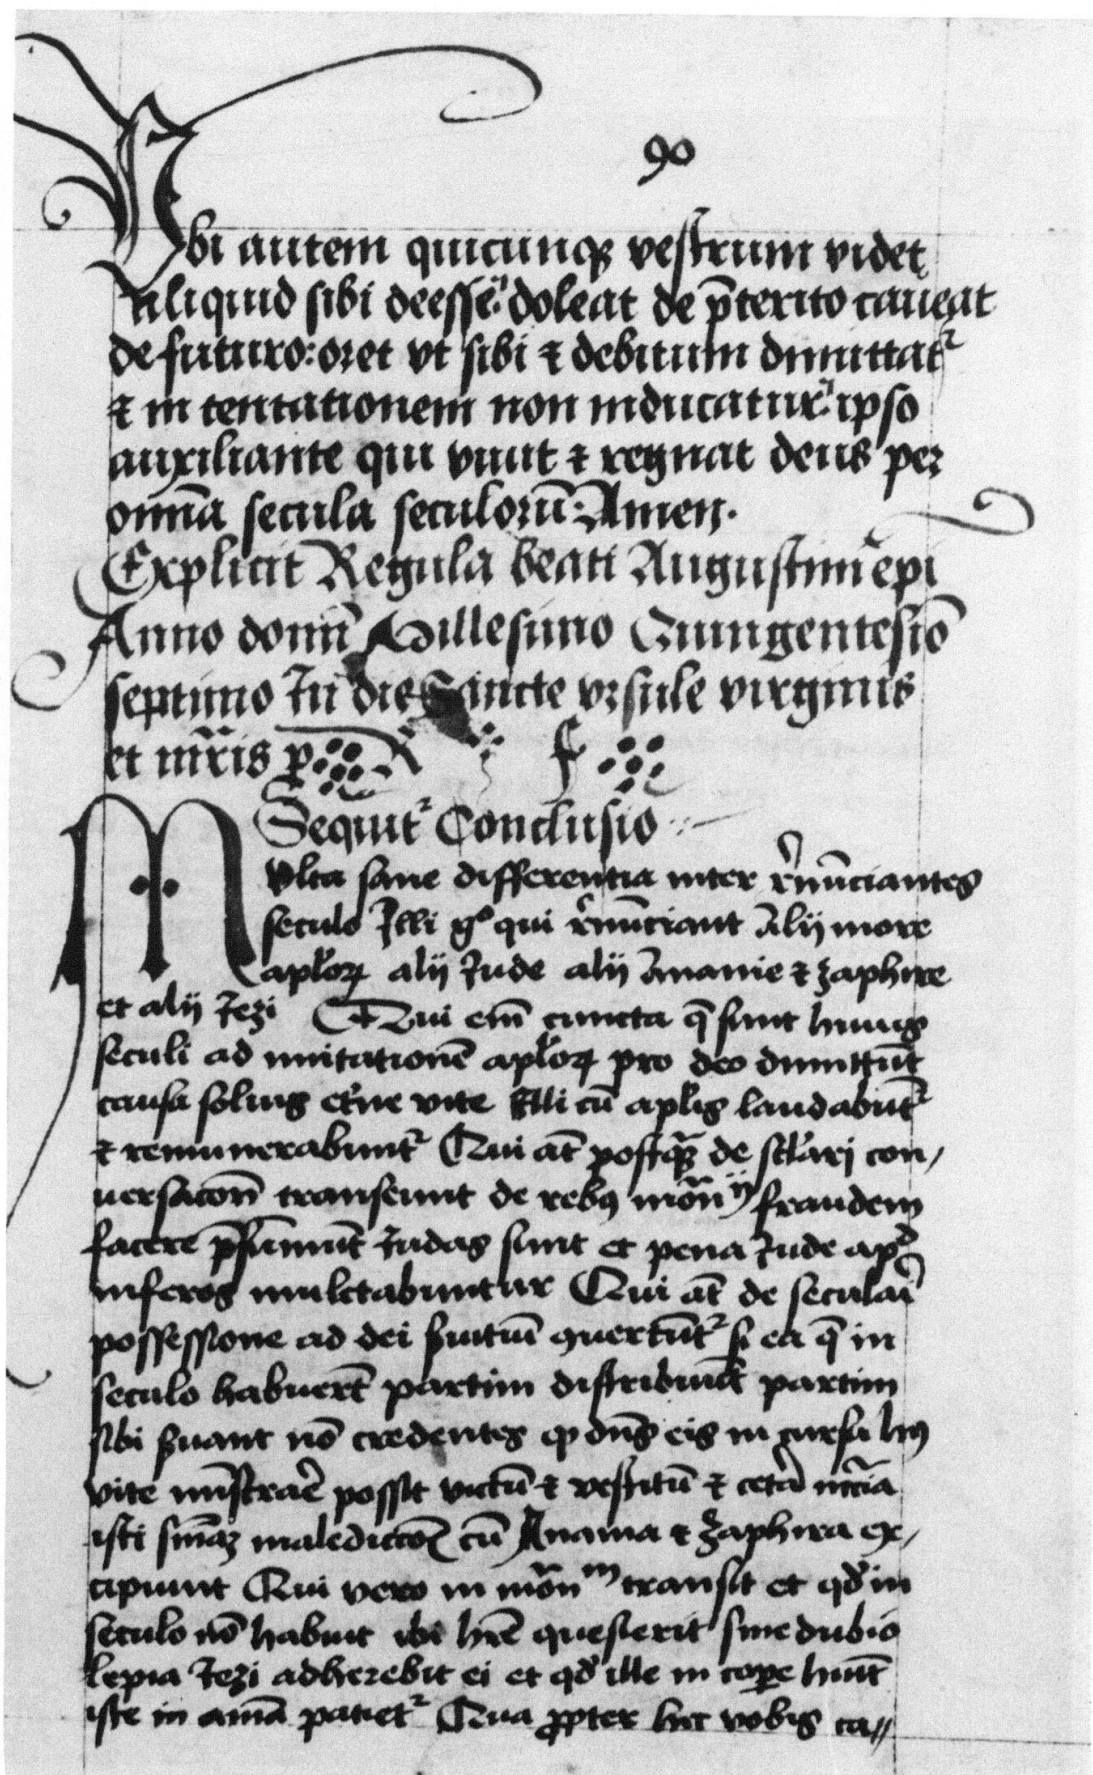 90
Vbi autem quicunqꝫ vestrum videt
Aliquid sibi deesse: doleat de p̄terito caueat
de futuro: oret vt sibi ⁊ debitum dimittat᷑
⁊ in tentationem non inducatur: ipso
auxiliante qui viuit ⁊ regnat deus per
omīa secula seculorū: Amen.
Explicit Regula beati Augustini ep̄i
Anno domī Millesimo Quingentesīo
septimo In die Sancte vrsule virginis
et mr̄is ꝑ R F
Sequit᷑ Conclusio
MVlta sane differentia inter r̄nūciantes
seculo Illi gͦ qui r̄nūciant Alij more
apl̓oꝝ alij Jude alij Ananie ⁊ zaphire
et alij Jezi Qui em̄ cuncta q̄ sunt huius
seculi ad imitationē apl̓oꝝ pro deo dimittūt
causa solius et̓ne vite Illi cū apl̓is laudabūt᷑
⁊ remunerabunt᷑ Qui at̄ postqꝫ de scl̓ari con/
uersacōn̄ transeunt de rebꝰ mōn̄ij fraudem
facere p̄sūmūt Judas sunt et pena Jude apᵈ
inferos mulctabuntur Qui at̄ de seculai̓
possessione ad dei ẜuitiū ꝯuertūt᷑ si ea q̄ in
seculo habuer̄t partim distribuūt partim
sibi ẜuant nō credentes ꝙ dn̄s eis in cursu hꝰ
vite mīstrar̄e possit victū ⁊ vestitū ⁊ cet̓a nc̄cīa
isti sn̄iaꝫ maledictōꝫ cū Anania ⁊ Zaphira ex/
cipiunt Qui vero in mōn̄ᵐ transit et qd̓ in
seculo nō habuit ibi hr̄e quesierit sine dubio
lepra Jezi adherebit ei et qd̓ ille in corꝑe hūit
iste in aīma patiet᷑ Qua ꝓpter hic vobis ca//